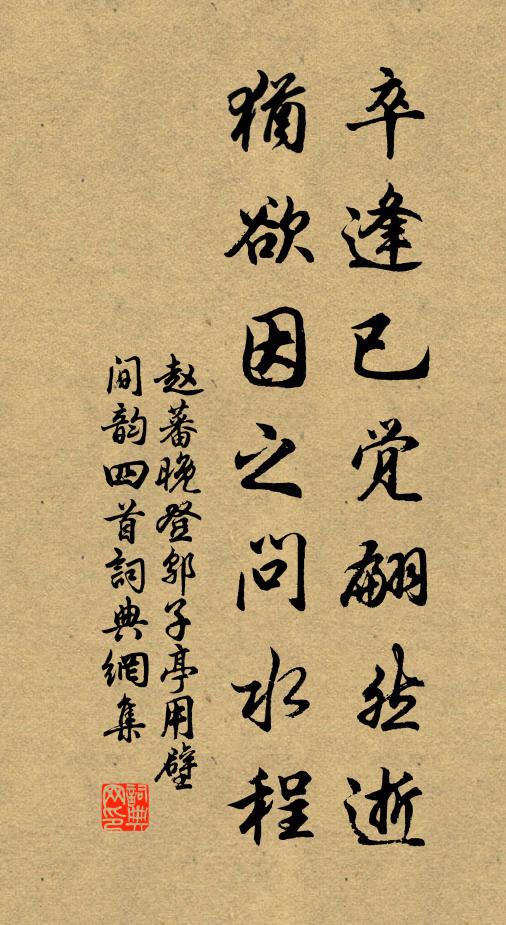 卒逢已觉翩然逝
犹欲因之问水程
赵蕃晚登邬子亭用壁
间韵四首詞典網集
詞典
网印